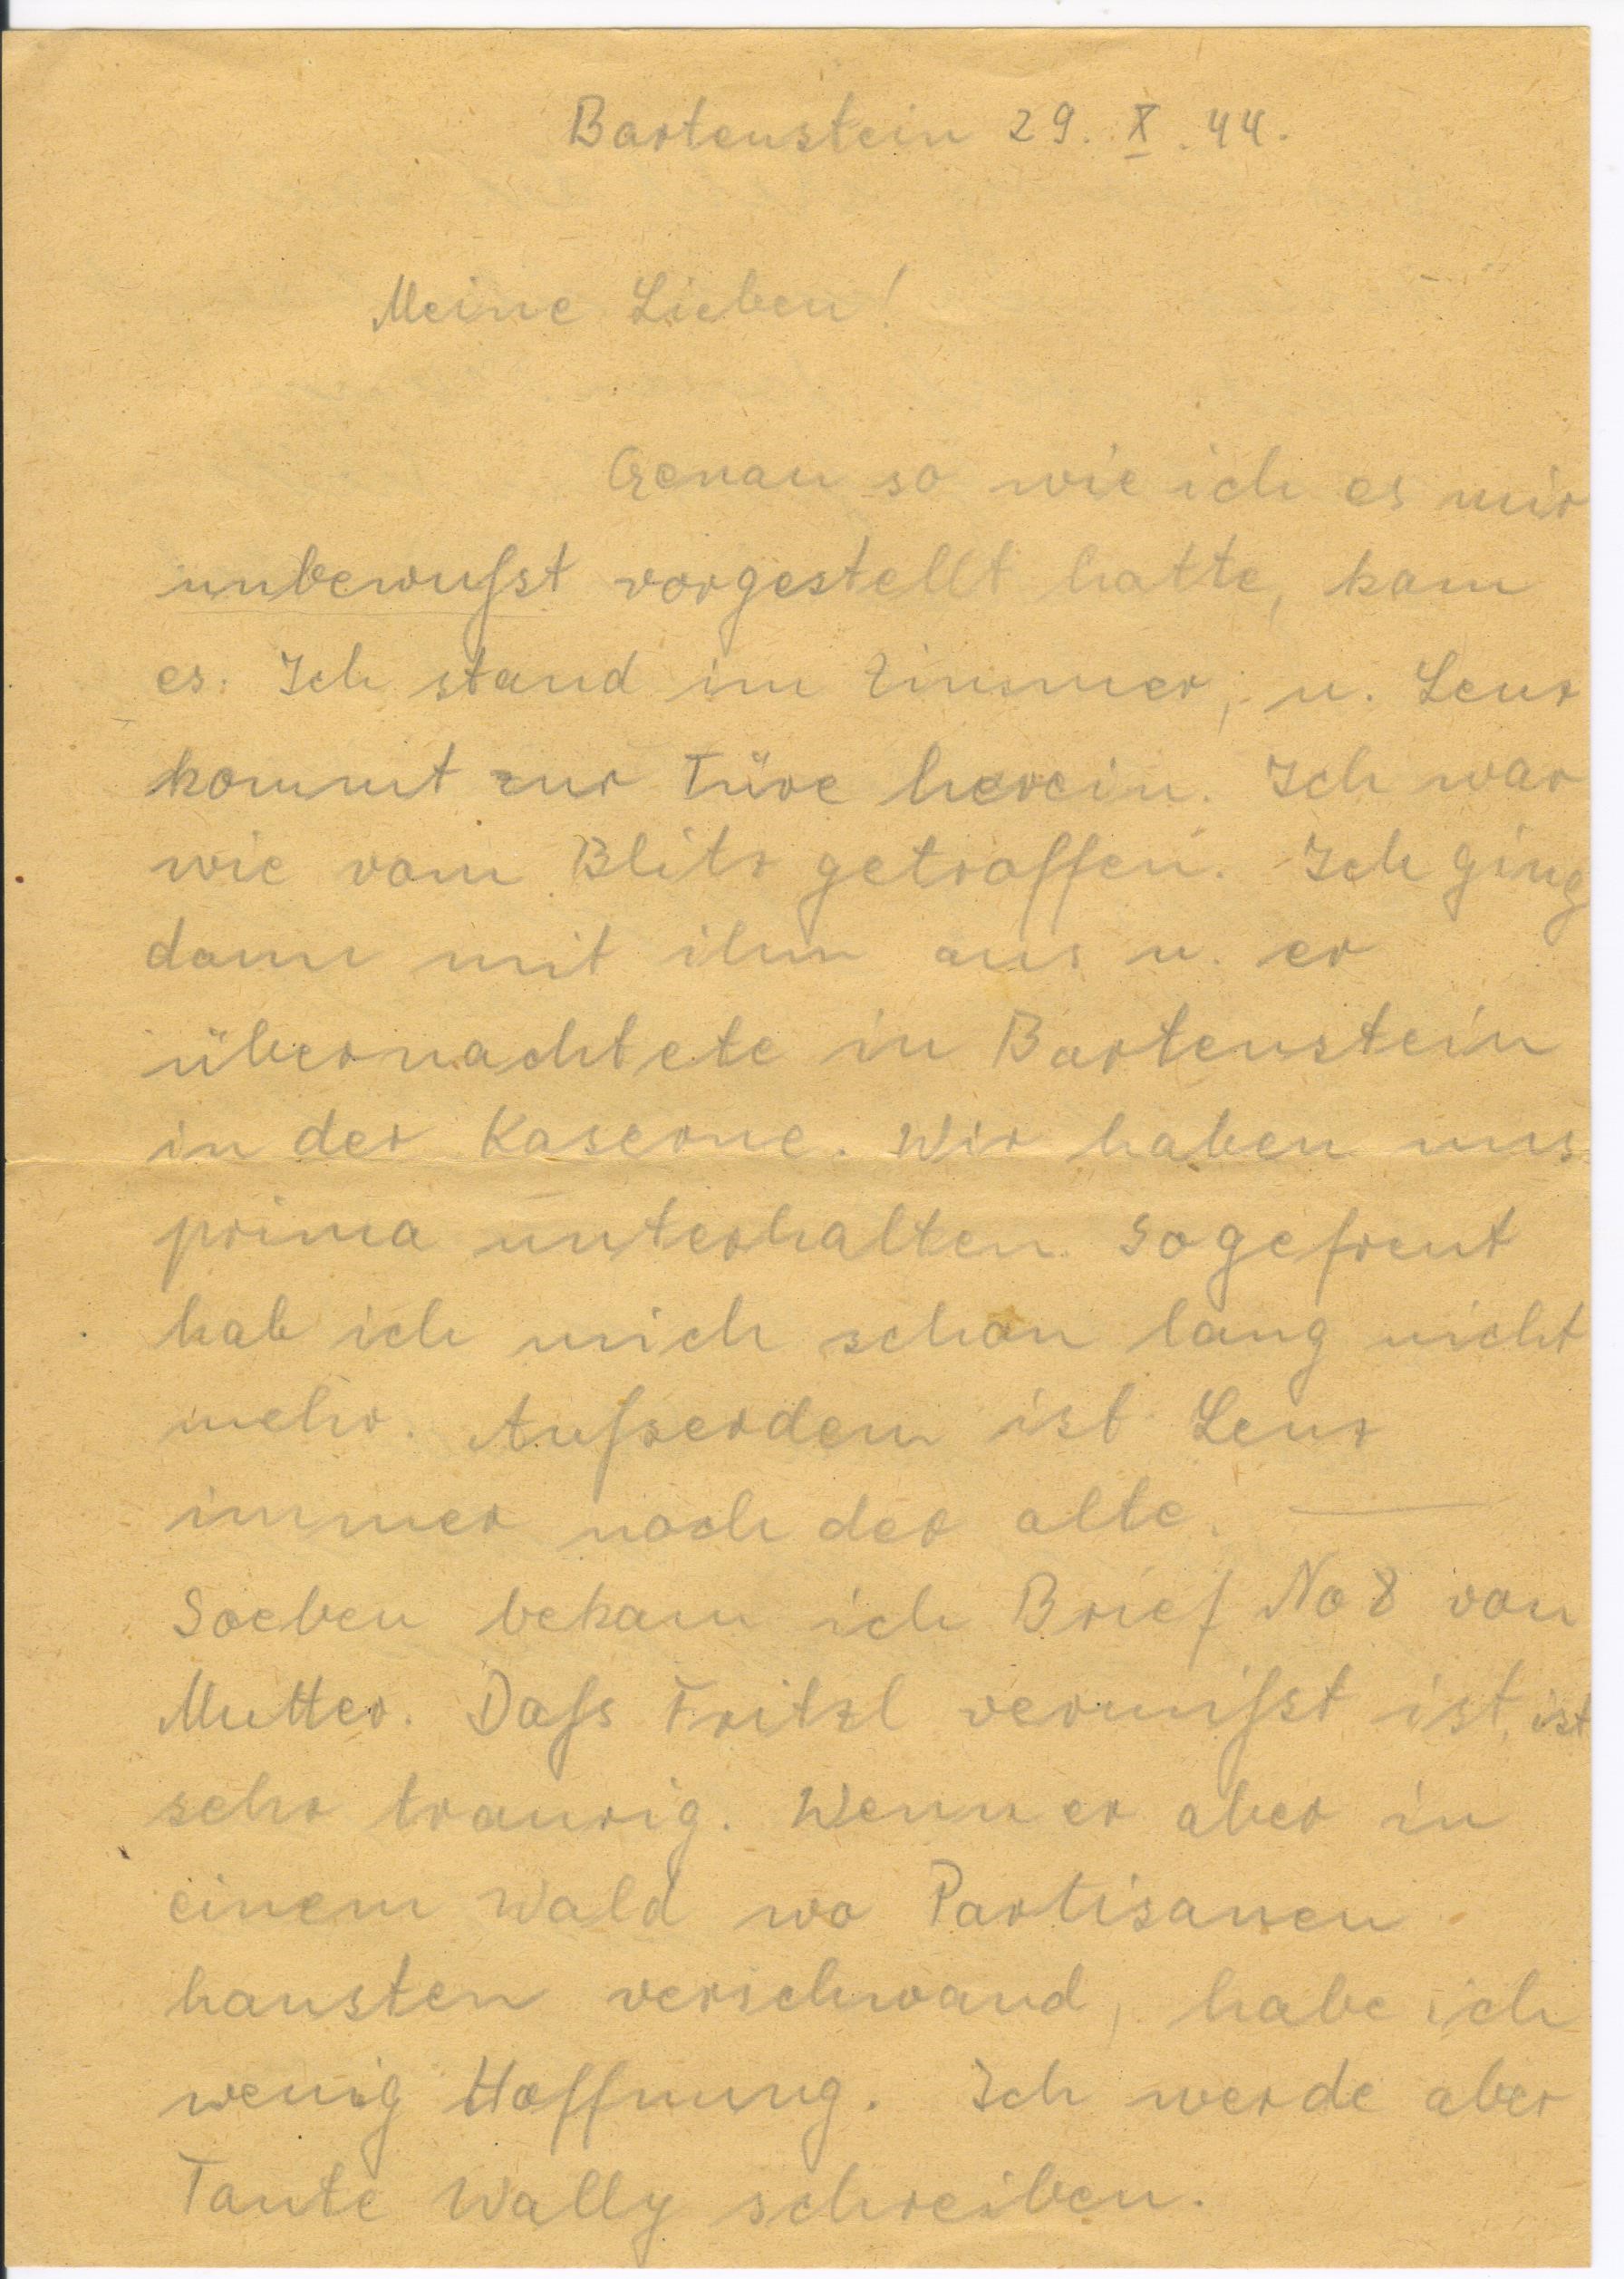 Bartenstein 29. X. 44.
Meine Lieben!
Genau so wie ich es mir
unbewußt vorgestellt hatte, kam
es. Ich stand im Zimmer, u. Lenz
kommt zur Türe herein. Ich war
wie vom Blitz getroffen. Ich ging
dann mit ihm aus u. er
übernachtete in Bartenstein
in der Kaserne. Wir haben uns
prima unterhalten. So gefreut
hab ich mich schon lang nicht
mehr. Außerdem ist Lenz
immer noch der alte. —
Soeben bekam ich Brief No 8 von
Mutter. Daß Fritzl vermißt ist, ist
sehr traurig. Wenn er aber in
einem Wald wo Partisanen
hausten verschwand, habe ich
wenig Hoffnung. Ich werde aber
Tante Wally schreiben.